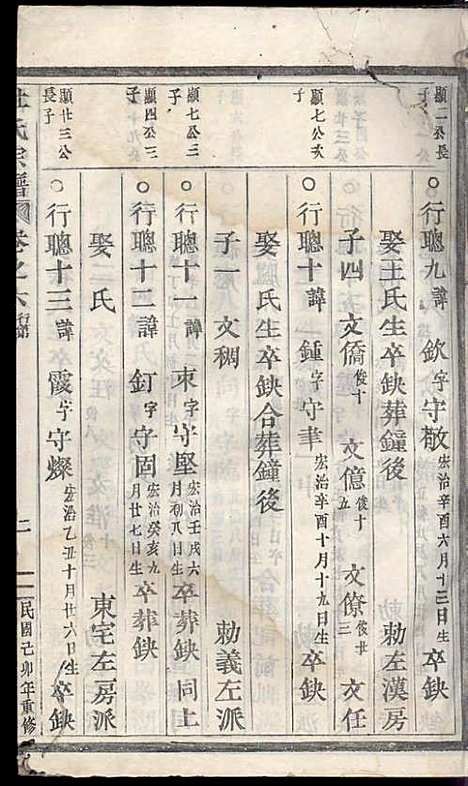 顯二公長子
○行聰九諱欽字守敬宏治辛酉六月十三日生卒缺
娶王氏生卒缺葬鐘後 勅左漢房
子四 文僑俊十 文億俊十五 文僚俊廿三 文任
顯七公次子
○行聰十諱鍾字守華宏治辛酉十月十九日生卒缺
娶 氏生卒缺合葬鐘後
子一 文稠 勅義左派
顯七公三子
○行聰十一諱 字守堅宏治壬戌六月初八日生卒葬缺同上
顯四公三子
○行聰十二諱釘字守固宏治癸亥九月廿七日生卒葬缺
娶 氏 東宅左房派
顯廿三公長子
○行聰十三諱霞字守燦宏治乙丑十月廿六日生卒缺
杜氏宗譜 卷之六 行第 二 民國己卯年重修